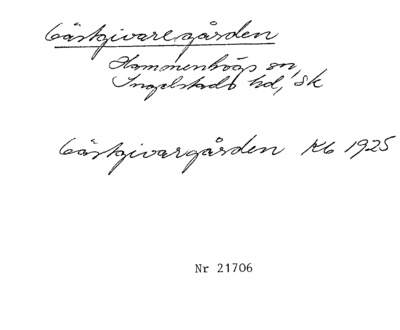 Gästgivaregården
Hammenhögs sn,
Ingelstads hd, Sk
Gästgivargården Kb 1925
Nr 21706